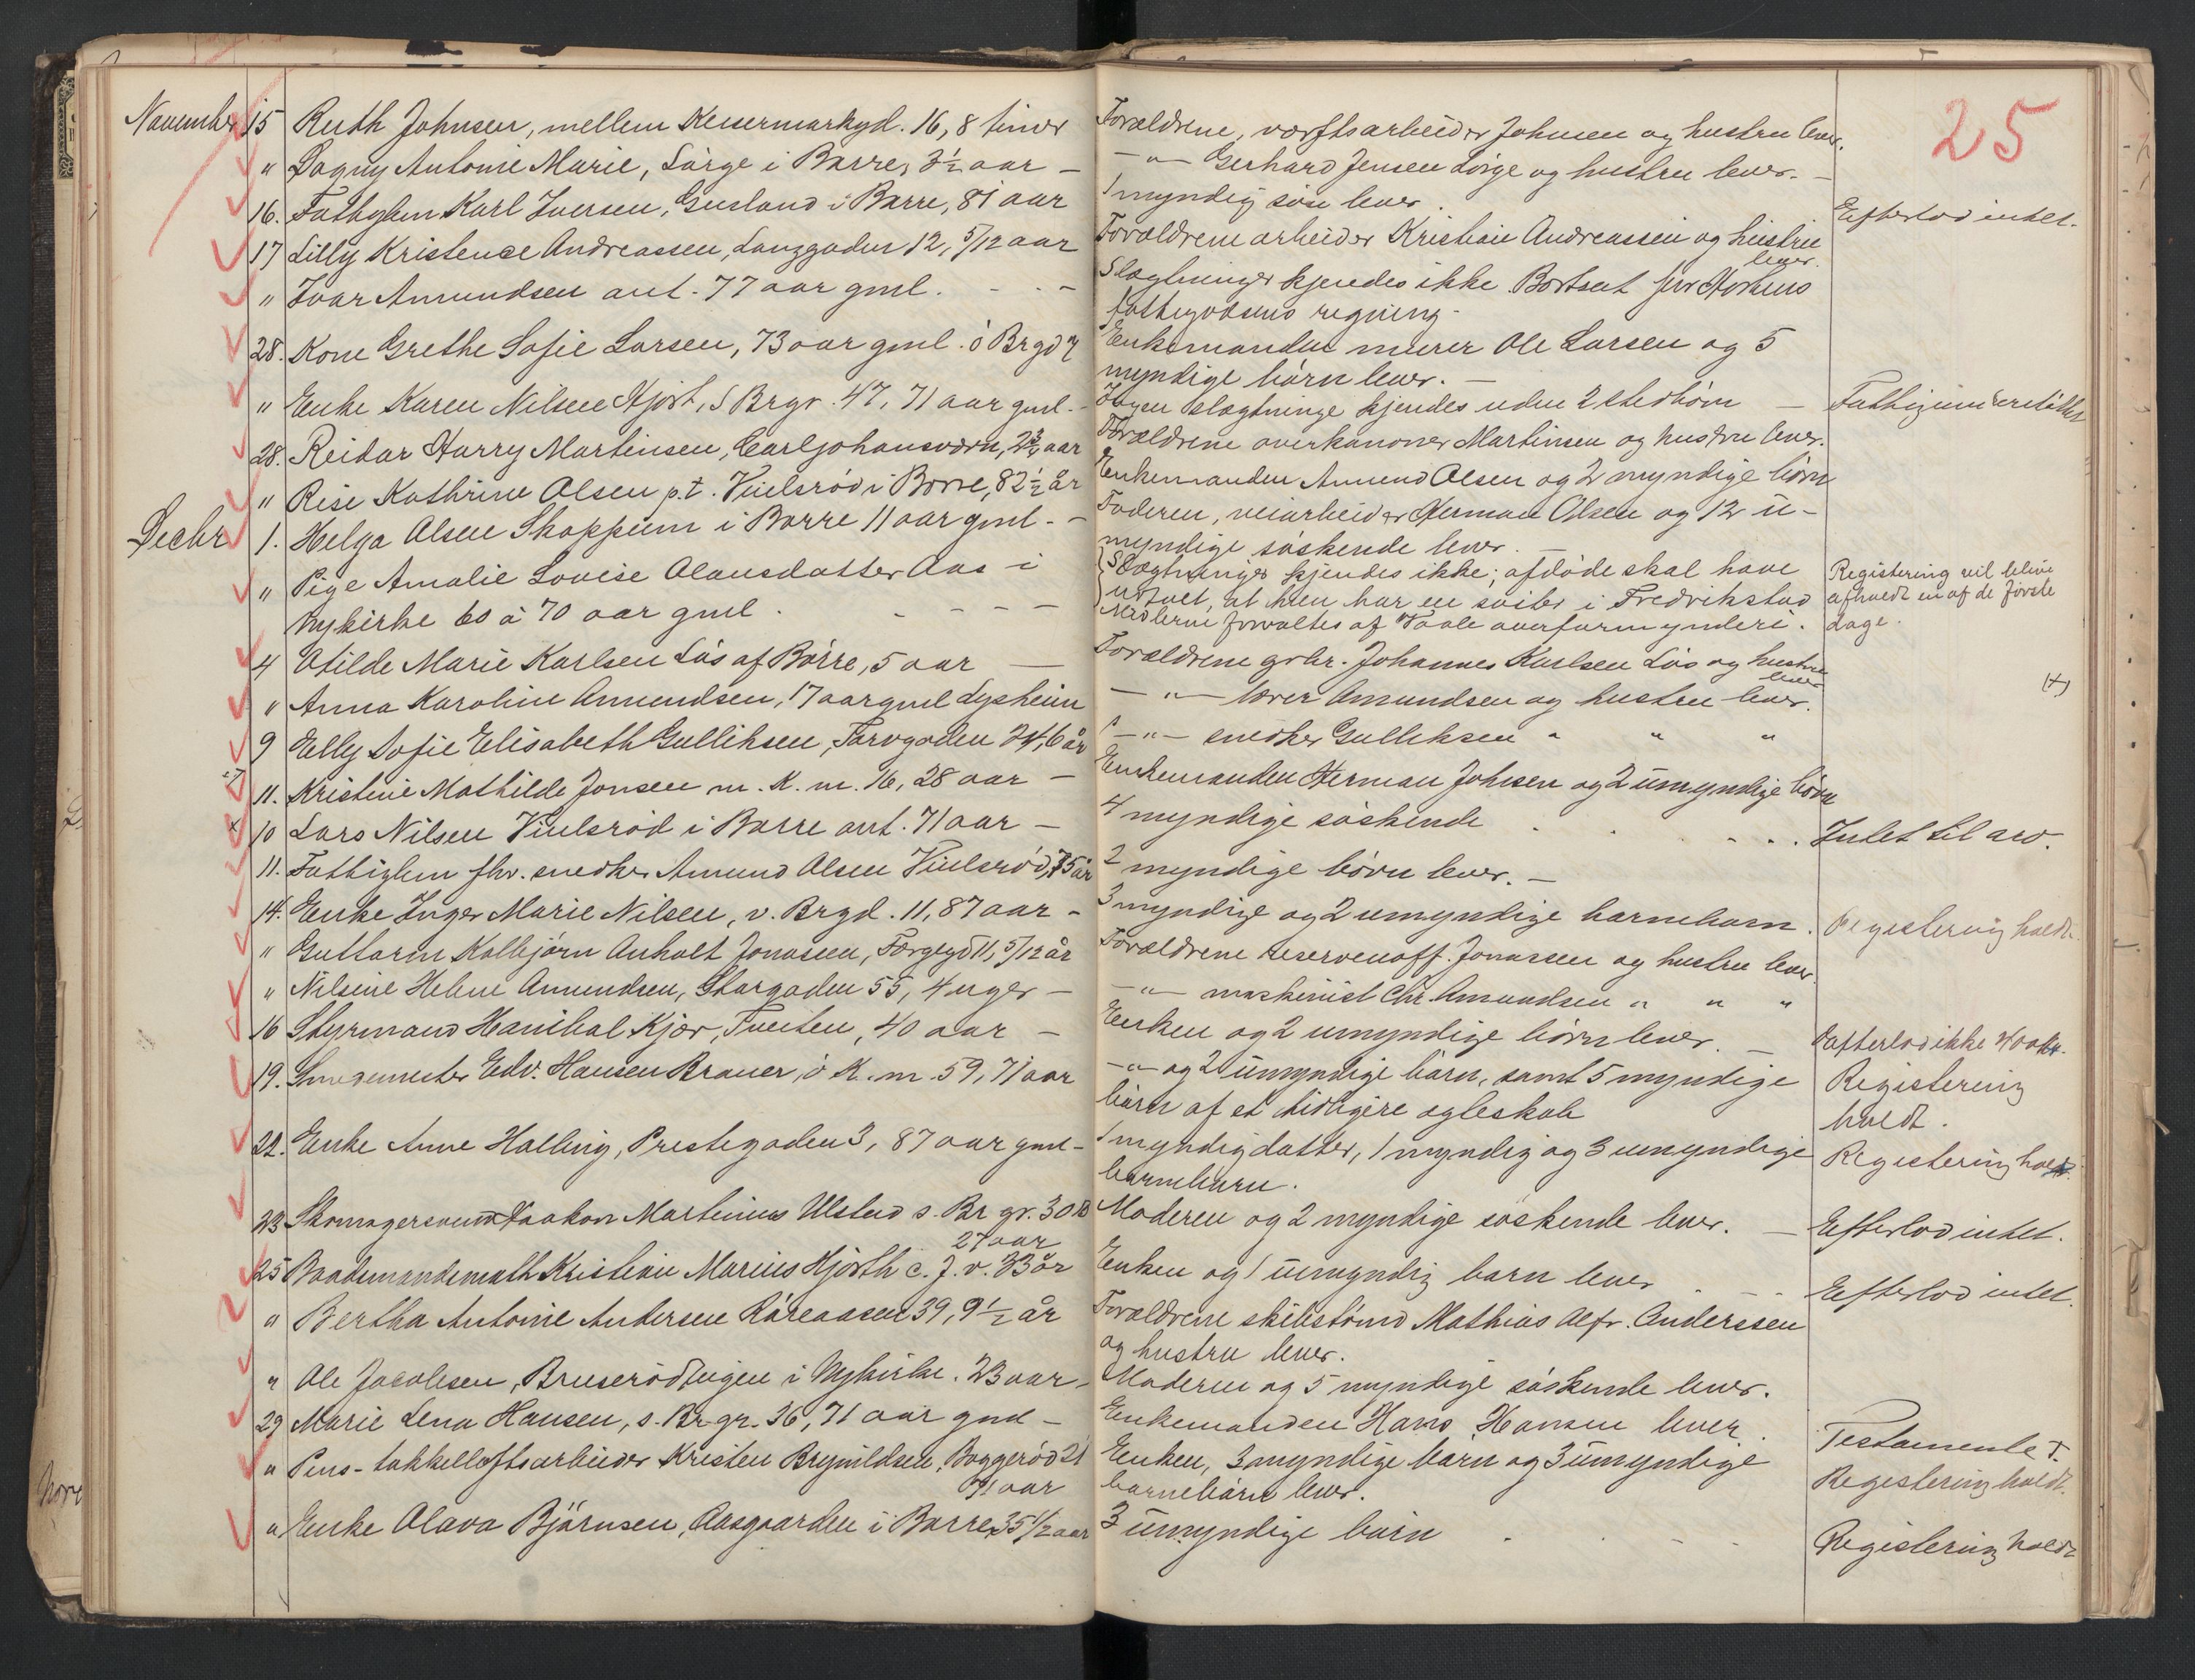 25
November 15 Ruth Johnsen, mellem Keisermarkgd. 16, 8 timer
" Dagny Antonie Marie, Lørge i Borre, 3½ aar -
16. Fattiglem Karl Iversen, Gusland i Borre, 81 aar
17 Lilly Kristence Andreassen, Langgaden 12, 5/12 aar
" Ivar Amundsen ant. 77 aar gml. - - -
28. Kone Grethe Sofie Larsen, 73 aar gml. ö Brgd 7
" Enke Karen Nilsen Hjort, S Brgr. 47, 71 aar gml. -
28. Reidar Harry Martinsen, Carljohansværn, 2¾ aar
" Rise Kathrine Olsen p.t. Viulsrød i Borre, 82½ år
Decbr 1. Helga Olsen Skoppum i Borre 11 aar gml. -
" Pige Amalie Lovise Olausdatter Aas i
Nykirke 60 à 70 aar gml. - - - -
4 Otilde Marie Karlsen Løs af Borre, 5 aar —
" Anna Karoline Amundsen, 17 aar gml Lysheim
9 Elly Sofie Elisabeth Gulliksen, Farvegaden 24, 6 år
11. Kristine Mathilde Jonsen m. K. m. 16, 28 aar -
10 Lars Nilsen Viulsrød i Borre ant. 71 aar -
11. Fattiglem fhv. snedker Amund Olsen Viulsrød, 75 år
14. Enke Inger Marie Nilsen, v. Brgd. 11, 87 aar -
" Guttorm Kolbjørn Anholt Jonassen, Færgegd 11, 5/12 år
" Nilsine Helene Amundsen, Storgaden 55, 4 uger -
16 Styrmand Hanibal Kjær, Tveiten, 40 aar -
19. Smedemester Edv. Hansen Braner, ö K. m. 59, 71 aar
22. Enke Anne Halling, Prestegaden 3, 87 aar gml -
23 Skomagersvend Haakon Martinius Ulstad s. Br gr. 30 B
27 aar
25 Baadsmandsmath Kristian Marius Hjorth c. J. v. 33 år
" Bertha Antonie Andersen Røreaasen 39, 9½ år
" Ole Jacobsen, Bruserødteigen i Nykirke. 23 aar -
29 Marie Lena Hansen, s. Br gr. 36, 71 aar gml -
" Pens-takkelloftsarbeider Kristen Brynildsen, Baggerød 21
71 aar
" Enke Olava Bjørnsen, Aasgaarden i Borre, 35½ aar
Forældrene, værftsarbeider Johnsen og hustru lever.
-"- Gerhard Jensen Lørge og hustru lever. -
1 myndig søn lever. Efterlod intet.
Forældrene arbeider Kristian Andreassen og hustru
lever.
Slægtninger kjendes ikke. Bortsat for Hortens
fattigvæsens regning -
Enkemanden murer Ole Larsen og 5
myndige børn lever. -
Ingen slægtninge kjendes uden 2 stedbørn - Fattigunderstøttet
Forældrene overkanoner Martinsen og hustru lever.
Enkemanden Amund Olsen og 2 myndige børn
Faderen, veiarbeider Herman Olsen og 12 u-
myndige søskende lever. -
Slægtninger kjendes ikke; afdøde skal have
udtalt, at hun har en søster i Fredrikstad
Midlerne forvaltes af Vaale overformynderi.
Registering vil blive
afholdt en af de første
dage.
Forældrene grbr. Johannes Karlsen Løs og hustru
lever
-"- lærer Amundsen og hustru lever.
(+)
-"- snedker Gulliksen " " "
Enkemanden Herman Johnsen og 2 umyndige børn
4 myndige søskende . . - - . Intet til arv.
2 myndige børn lever. -
3 myndige og 2 umyndige barnebarn. Registering holdt.
Forældrene reserveuoff. Jonassen og hustru lever
-"- maskinist Chr. Amundsen " " "
Enken og 2 umyndige børn lever. - Efterlod ikke 400 kr.
-"- og 2 umyndige børn, samt 5 myndige Registering
børn af et tidligere egteskab holdt.
1 myndig datter, 1 myndig og 3 umyndige Registering holdt.
barnebarn.
Moderen og 2 myndige søskende lever. - Efterlod intet.
Enken og 1 umyndig barn lever - - - Efterlod intet.
Forældrene skibstømd Mathias Alfr. Anderssen
og hustru lever.
Moderen og 5 myndige søskende lever.
Enkemanden Hans Hansen lever. Testamente
Enken, 3 myndige børn og 3 umyndige
barnebørn lever. Registering holdt.
3 umyndige børn . - - Registering holdt